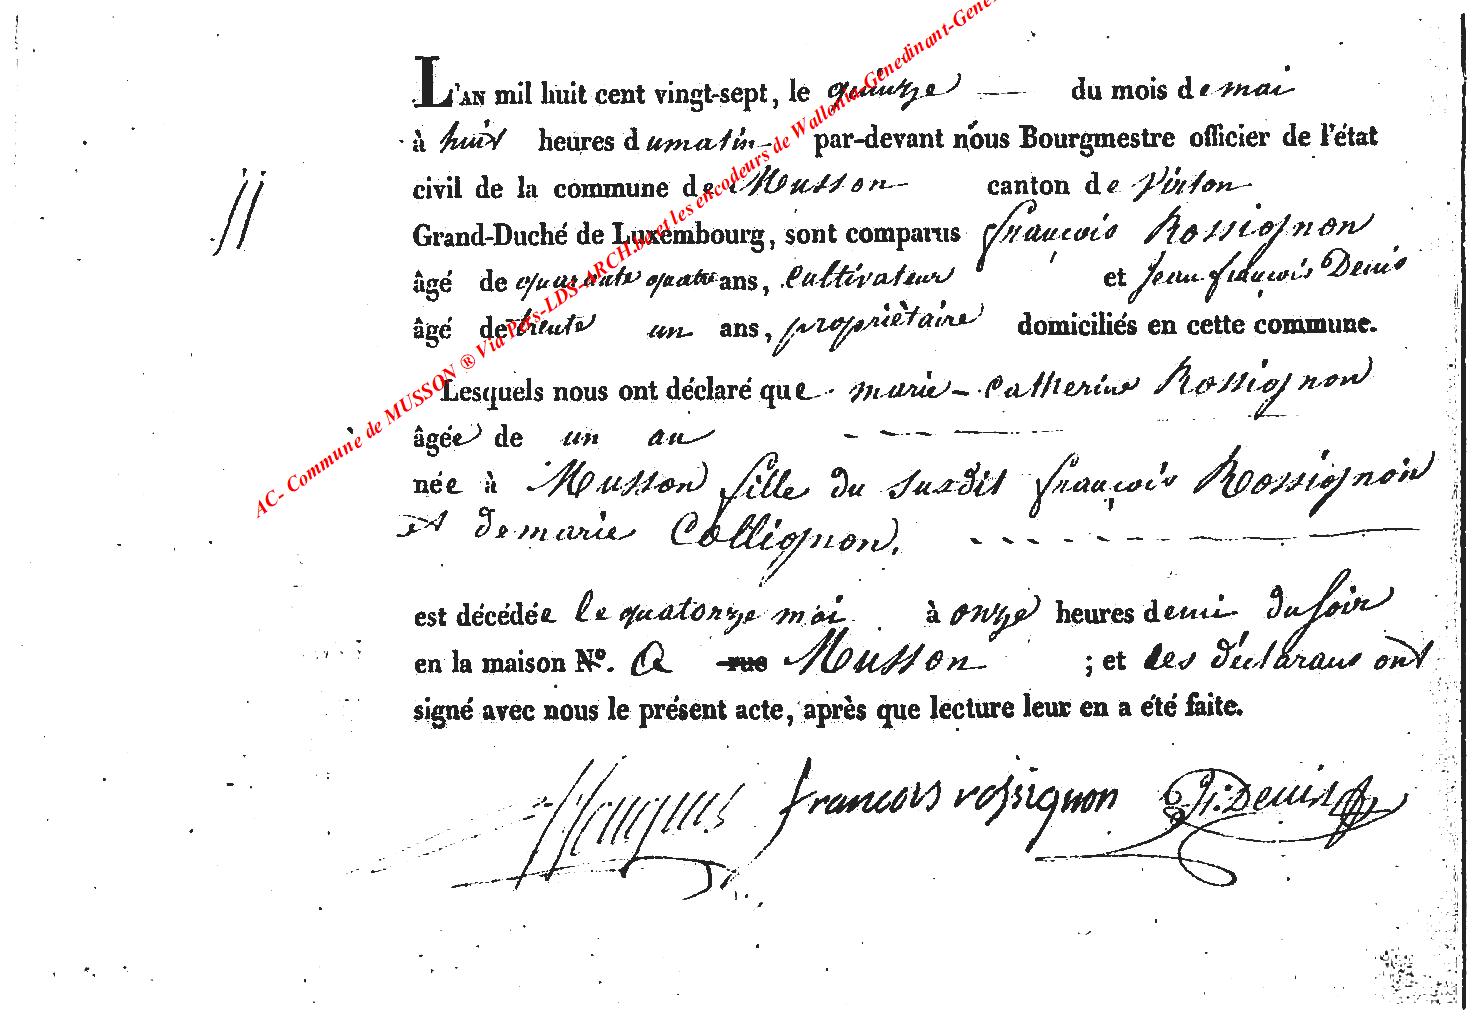 L'AN mil huit cent vingt-sept, le quinze du mois de mai
à huit heures du matin par-devant nous Bourgmestre officier de l'état
civil de la commune de Musson canton de Virton
jj
Grand-Duché de Luxembourg, sont comparus françois Rossignon
âgé de quarante quatre ans, Cultivateur et Jean françois Denis
âgé de trente un ans, propriètaire domiciliés en cette commune.
Lesquels nous ont déclaré que marie-Catherine Rossignon
âgée de un an
née à Musson fille du susdit françois Rossignon
et de marie Collignon.
est décédée le quatorze mai à onze heures demi du soir
en la maison N°. A rue Musson ; et les déclarans ont
signé avec nous le présent acte, après que lecture leur en a été faite.
francois rossignon J: Denis
AC- Commune de MUSSON ® Via Pers-LDS-ARCH.be et les encodeurs de Wallonia-Genedinant-Gene